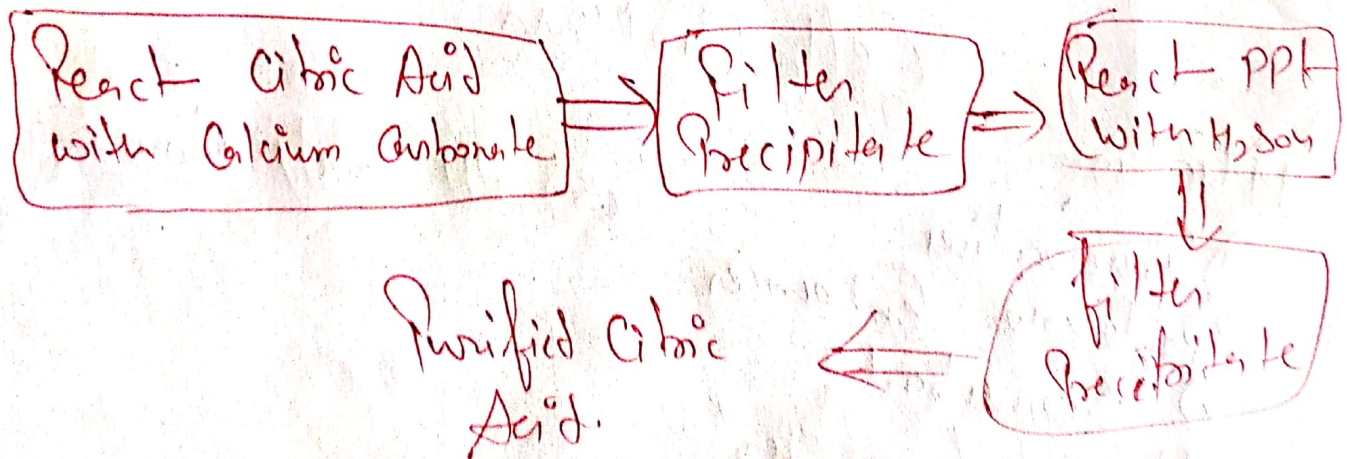 React Citric Acid
with Calcium Carbonate
Filter
Precipitate
React PPt
with H2SO4
Filter
Precipitate
Purified Citric
Acid.